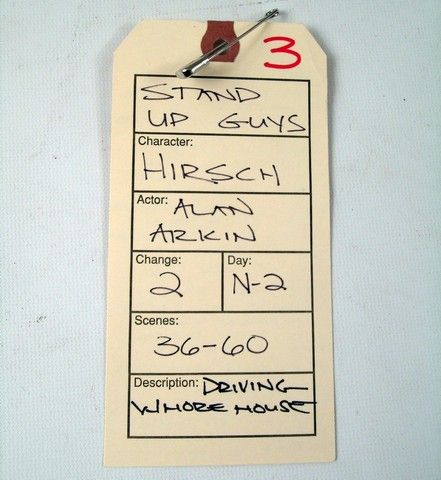 3
STAND
UP GUYS
Character:
HIRSCH
Actor: ALAN
ARKIN
Change: Day:
2 N-2
Scenes:
36-60
Description: DRIVING
WHORE HOUSE